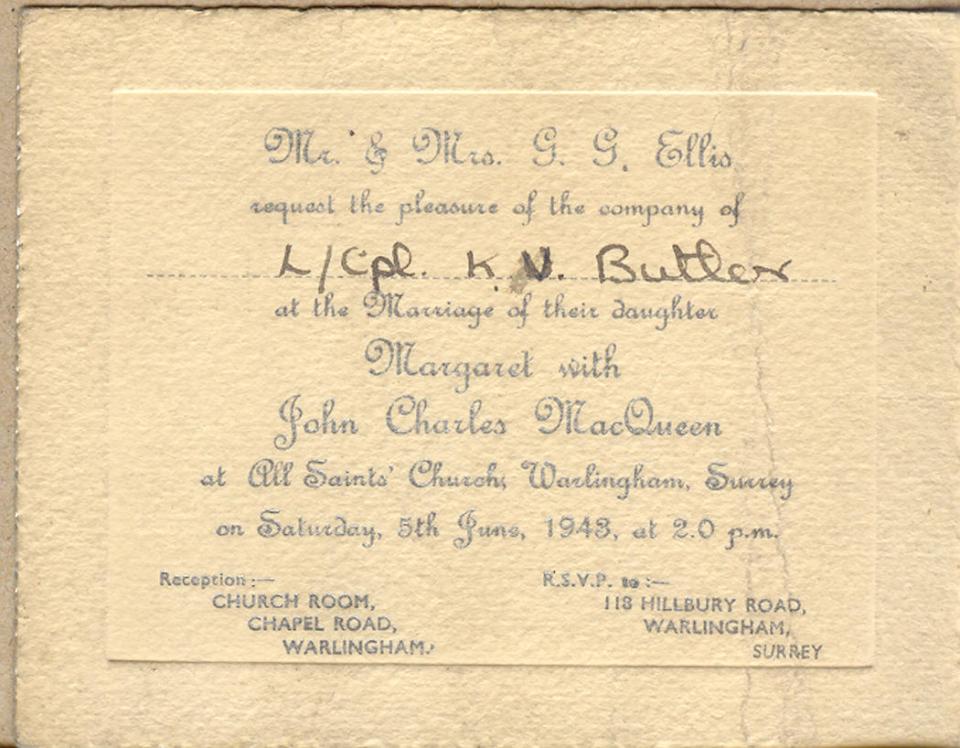 Mr. & Mrs. G. G. Ellis
request the pleasure of the company of
L/Cpl. K. V. Butler
at the Marriage of their daughter
Margaret with
John Charles MacQueen
at All Saints' Church, Warlingham, Surrey
on Saturday, 5th June, 1943, at 2.0 p.m.
Reception :—
CHURCH ROOM,
CHAPEL ROAD,
WARLINGHAM.
R.S.V.P. to :—
118 HILLBURY ROAD,
WARLINGHAM,
SURREY